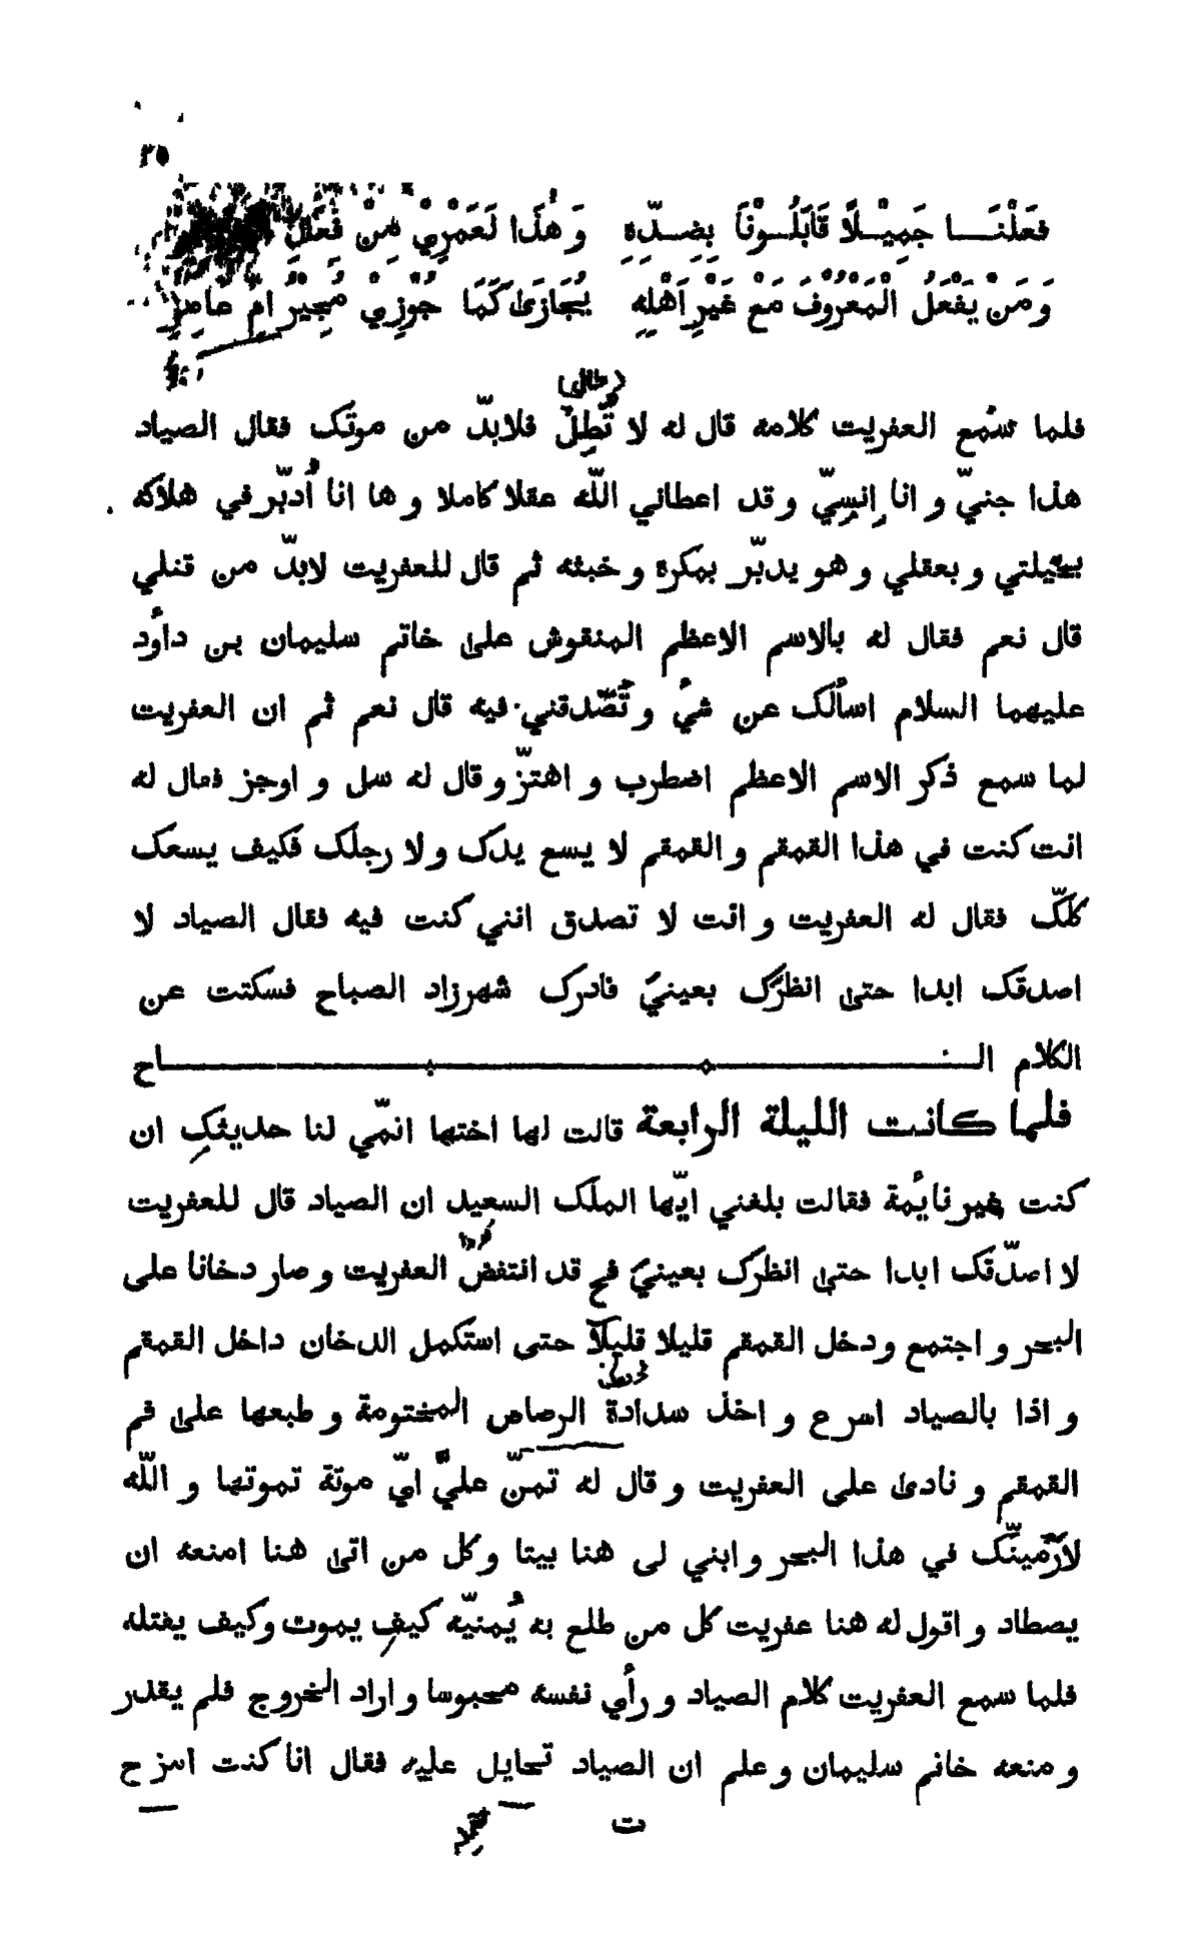 ٢٥
فَعَلْنَا جَمِيْلًا قَابَلُوْنَا بِضِدِّهِ وَهٰذَا لَعَمْرِيْ مِنْ فِعَالِ
وَمَنْ يَفْعَلُ الْمَعْرُوْفَ مَعْ غَيْرِ اَهْلِهِ يُجَازَىٰ كَمَا جُوْزِيْ مُجِيْرُ امِّ عَامِرِ
فلما سَمع العفريت كلامه قال له لا تُطِلْ فلابدّ من موتك فقال الصياد
هذا جنيّ و انا اِنسِيّ و قد اعطاني اللّه عقلا كاملا و ها انا اُدبّر في هلاكه
بحيلتي و بعقلي و هو يدبّر بمكره و خبثه ثم قال للعفريت لابدّ من قتلي
قال نعم فقال له بالاسم الاعظم المنقوش علىٰ خاتم سليمان بن داؤد
عليهما السلام اسألك عن شئ و تُصّدقني فيه قال نعم ثم ان العفريت
لما سمع ذكر الاسم الاعظم اضطرب و اهتزّ و قال له سل و اوجز فقال له
انت كنت في هذا القمقم و القمقم لا يسع يدك و لا رجلك فكيف يسعك
كلّك فقال له العفريت و انت لا تصدق انني كنت فيه فقال الصياد لا
اصدقك ابدا حتىٰ انظرك بعينيّ فادرك شهرزاد الصباح فسكتت عن
الكلام المباح
فلما كانت الليلة الرابعة قالت لها اختها اتمّي لنا حديثكِ ان
كنت غير نائمة فقالت بلغني ايّها الملك السعيد ان الصياد قال للعفريت
لا اصدّقك ابدا حتىٰ انظرك بعينيّ فح قد انتفض العفريت و صار دخانا على
البحر و اجتمع و دخل القمقم قليلا قليلاً حتى استكمل الدخان داخل القمقم
و اذا بالصياد اسرع و اخذ سدادة الرصاص المختومة و طبعها علىٰ فم
القمقم و نادىٰ على العفريت و قال له تمنّ عليَّ ايّ موتة تموتها و اللّه
لارمينّك في هذا البحر و ابني لى هنا بيتا و كل من اتىٰ هنا امنعه ان
يصطاد و اقول له هنا عفريت كل من طلع به يُمنيّه كيف يموت وكيف يقتله
فلما سمع العفريت كلام الصياد و رأي نفسه محبوسا و اراد الخروج فلم يقدر
و منعه خاتم سليمان و علم ان الصياد تحايل عليه فقال انا كنت امزح
ت